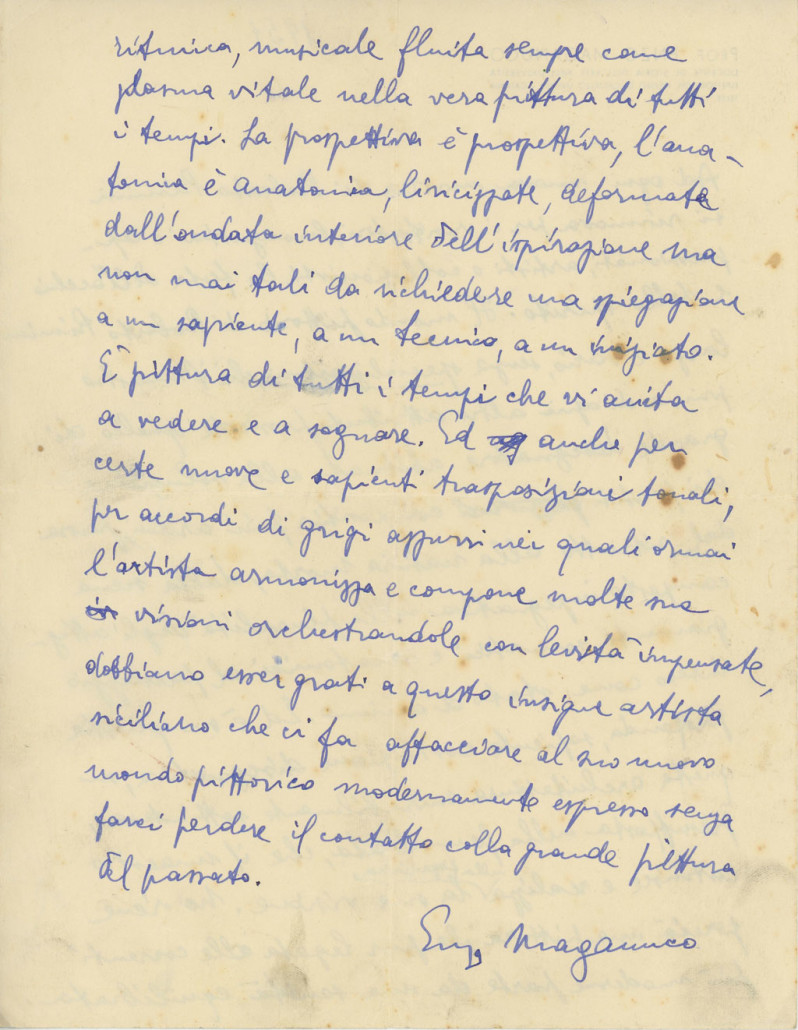 ritmica, musicale fluita sempre come
plasma vitale nella vera pittura di tutti
i tempi. La prospettiva è prospettiva, l'ana-
tomia è anatomia, liricizzate, deformate
dall'ondata interiore dell'ispirazione ma
non mai tali da richiedere una spiegazione
a un sapiente, a un tecnico, a un iniziato.
È pittura di tutti i tempi che vi aiuta
a vedere e a sognare. Ed anche per
certe nuove e sapienti trasposizioni tonali,
per accordi di grigi azzurri nei quali ormai
l'artista armonizza e compone molte sue
visioni orchestrandole con levità impensate,
dobbiamo esser grati a questo insigne artista
siciliano che ci fa affacciare al suo nuovo
mondo pittorico modernamente espresso senza
farci perdere il contatto colla grande pittura
del passato.
Eug Maganuco